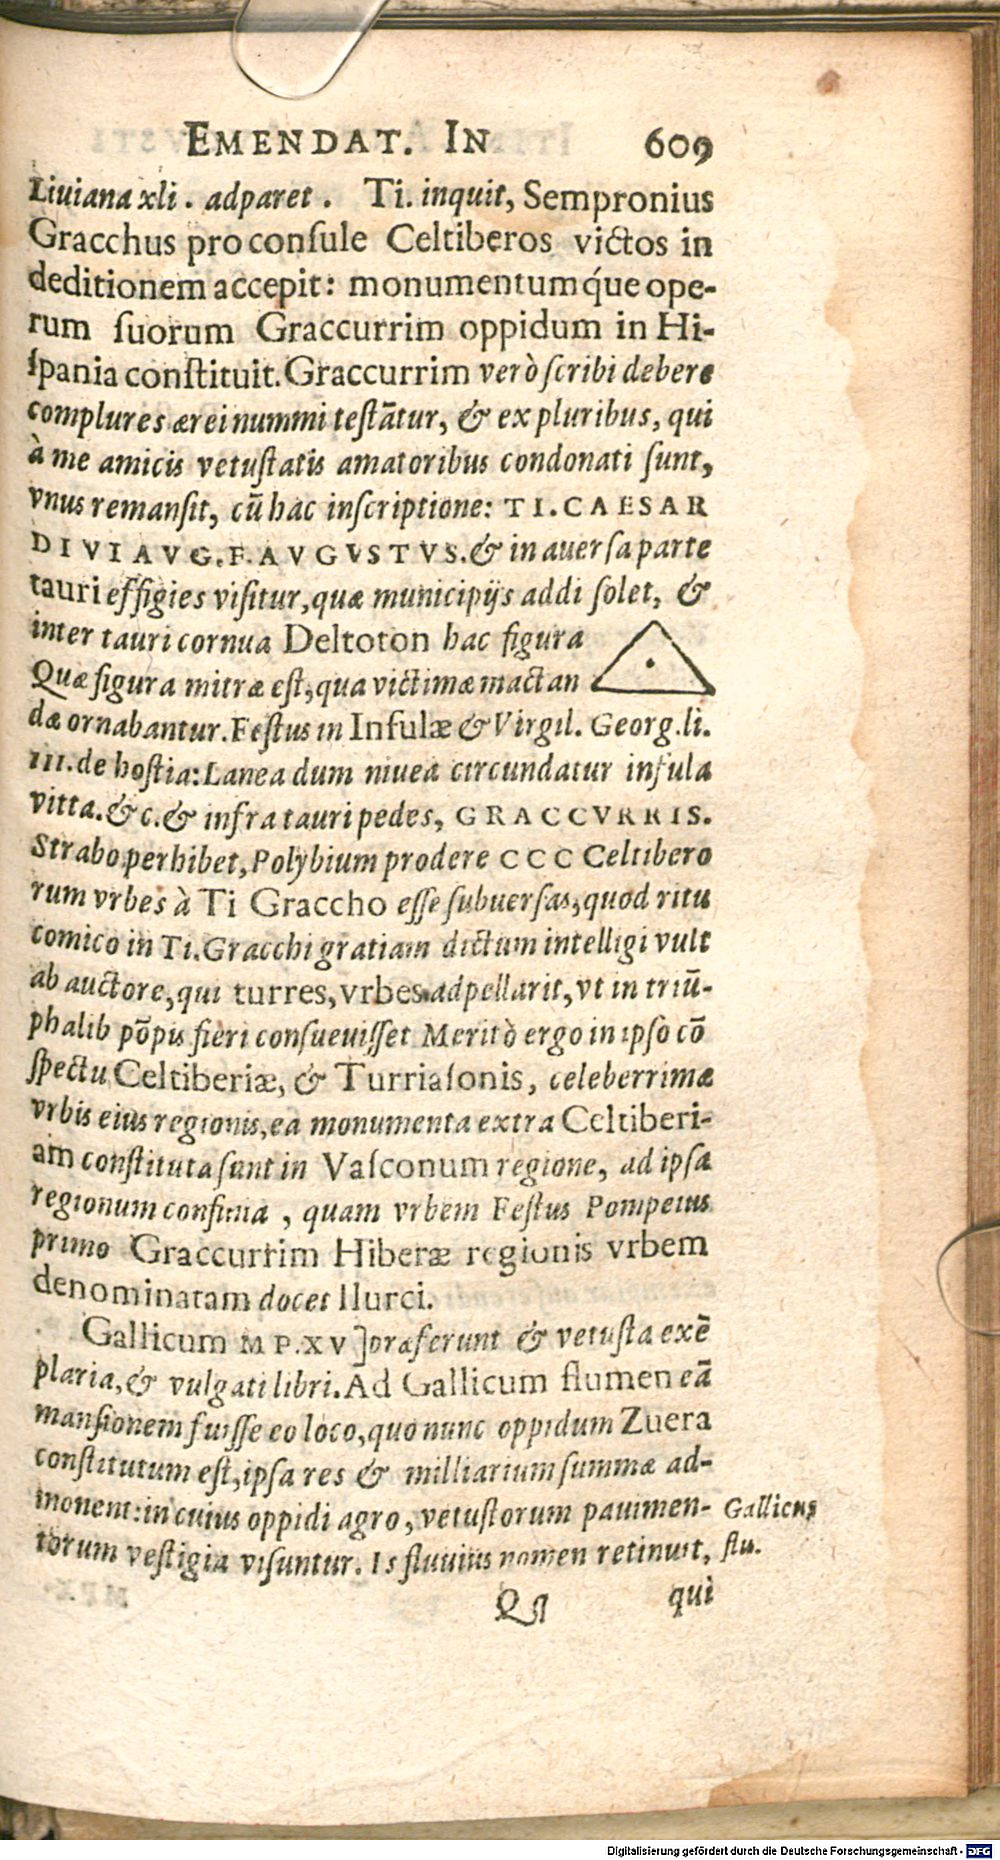 EMENDAT. IN 609
Liuiana xli. adparet. Ti. inquit, Sempronius
Gracchus pro consule Celtiberos victos in
deditionem accepit: monumentumq́ue ope-
rum suorum Graccurrim oppidum in Hi-
spania constituit. Graccurrim verò scribi debere
complures ærei nummi testātur, & ex pluribus, qui
à me amicis vetustatis amatoribus condonati sunt,
vnus remansit, cū hac inscriptione: TI. CAESAR
DIVI AVG. F. AVGVSTVS. & in auersa parte
tauri effigies visitur, quæ municipijs addi solet, &
inter tauri cornua Deltoton hac figura
Quæ figura mitræ est, qua victimæ mactan
dæ ornabantur. Festus in Infulæ & Virgil. Georg. li.
III. de hostia: Lanea dum niuea circundatur infula
vitta. &c. & infra tauri pedes, GRACCVRRIS.
Strabo perhibet, Polybium prodere CCC Celtibero
rum vrbes à Ti Graccho esse subuersas, quod ritu
comico in Ti. Gracchi gratiam dictum intelligi vult
ab auctore, qui turres, vrbes adpellarit, vt in triū-
phalib pōpis fieri consueuisset Meritò ergo in ipso cō
spectu Celtiberiæ, & Turriasonis, celeberrimæ
vrbis eius regionis, ea monumenta extra Celtiberi-
am constituta sunt in Vasconum regione, ad ipsa
regionum confinia, quam vrbem Festus Pompeius
primo Graccurrim Hiberæ regionis vrbem
denominatam docet Ilurci.
Gallicum MP. XV] præferunt & vetusta exē
plaria, & vulgati libri. Ad Gallicum flumen eā
mansionem fuisse eo loco, quo nunc oppidum Zuera
constitutum est, ipsa res & milliarium summæ ad-
monent: in cuius oppidi agro, vetustorum pauimen-
torum vestigia visuntur. Is fluuius nomen retinuit,
Gallicus
flu.
Qq qui
Digitalisierung gefördert durch die Deutsche Forschungsgemeinschaft - DFG